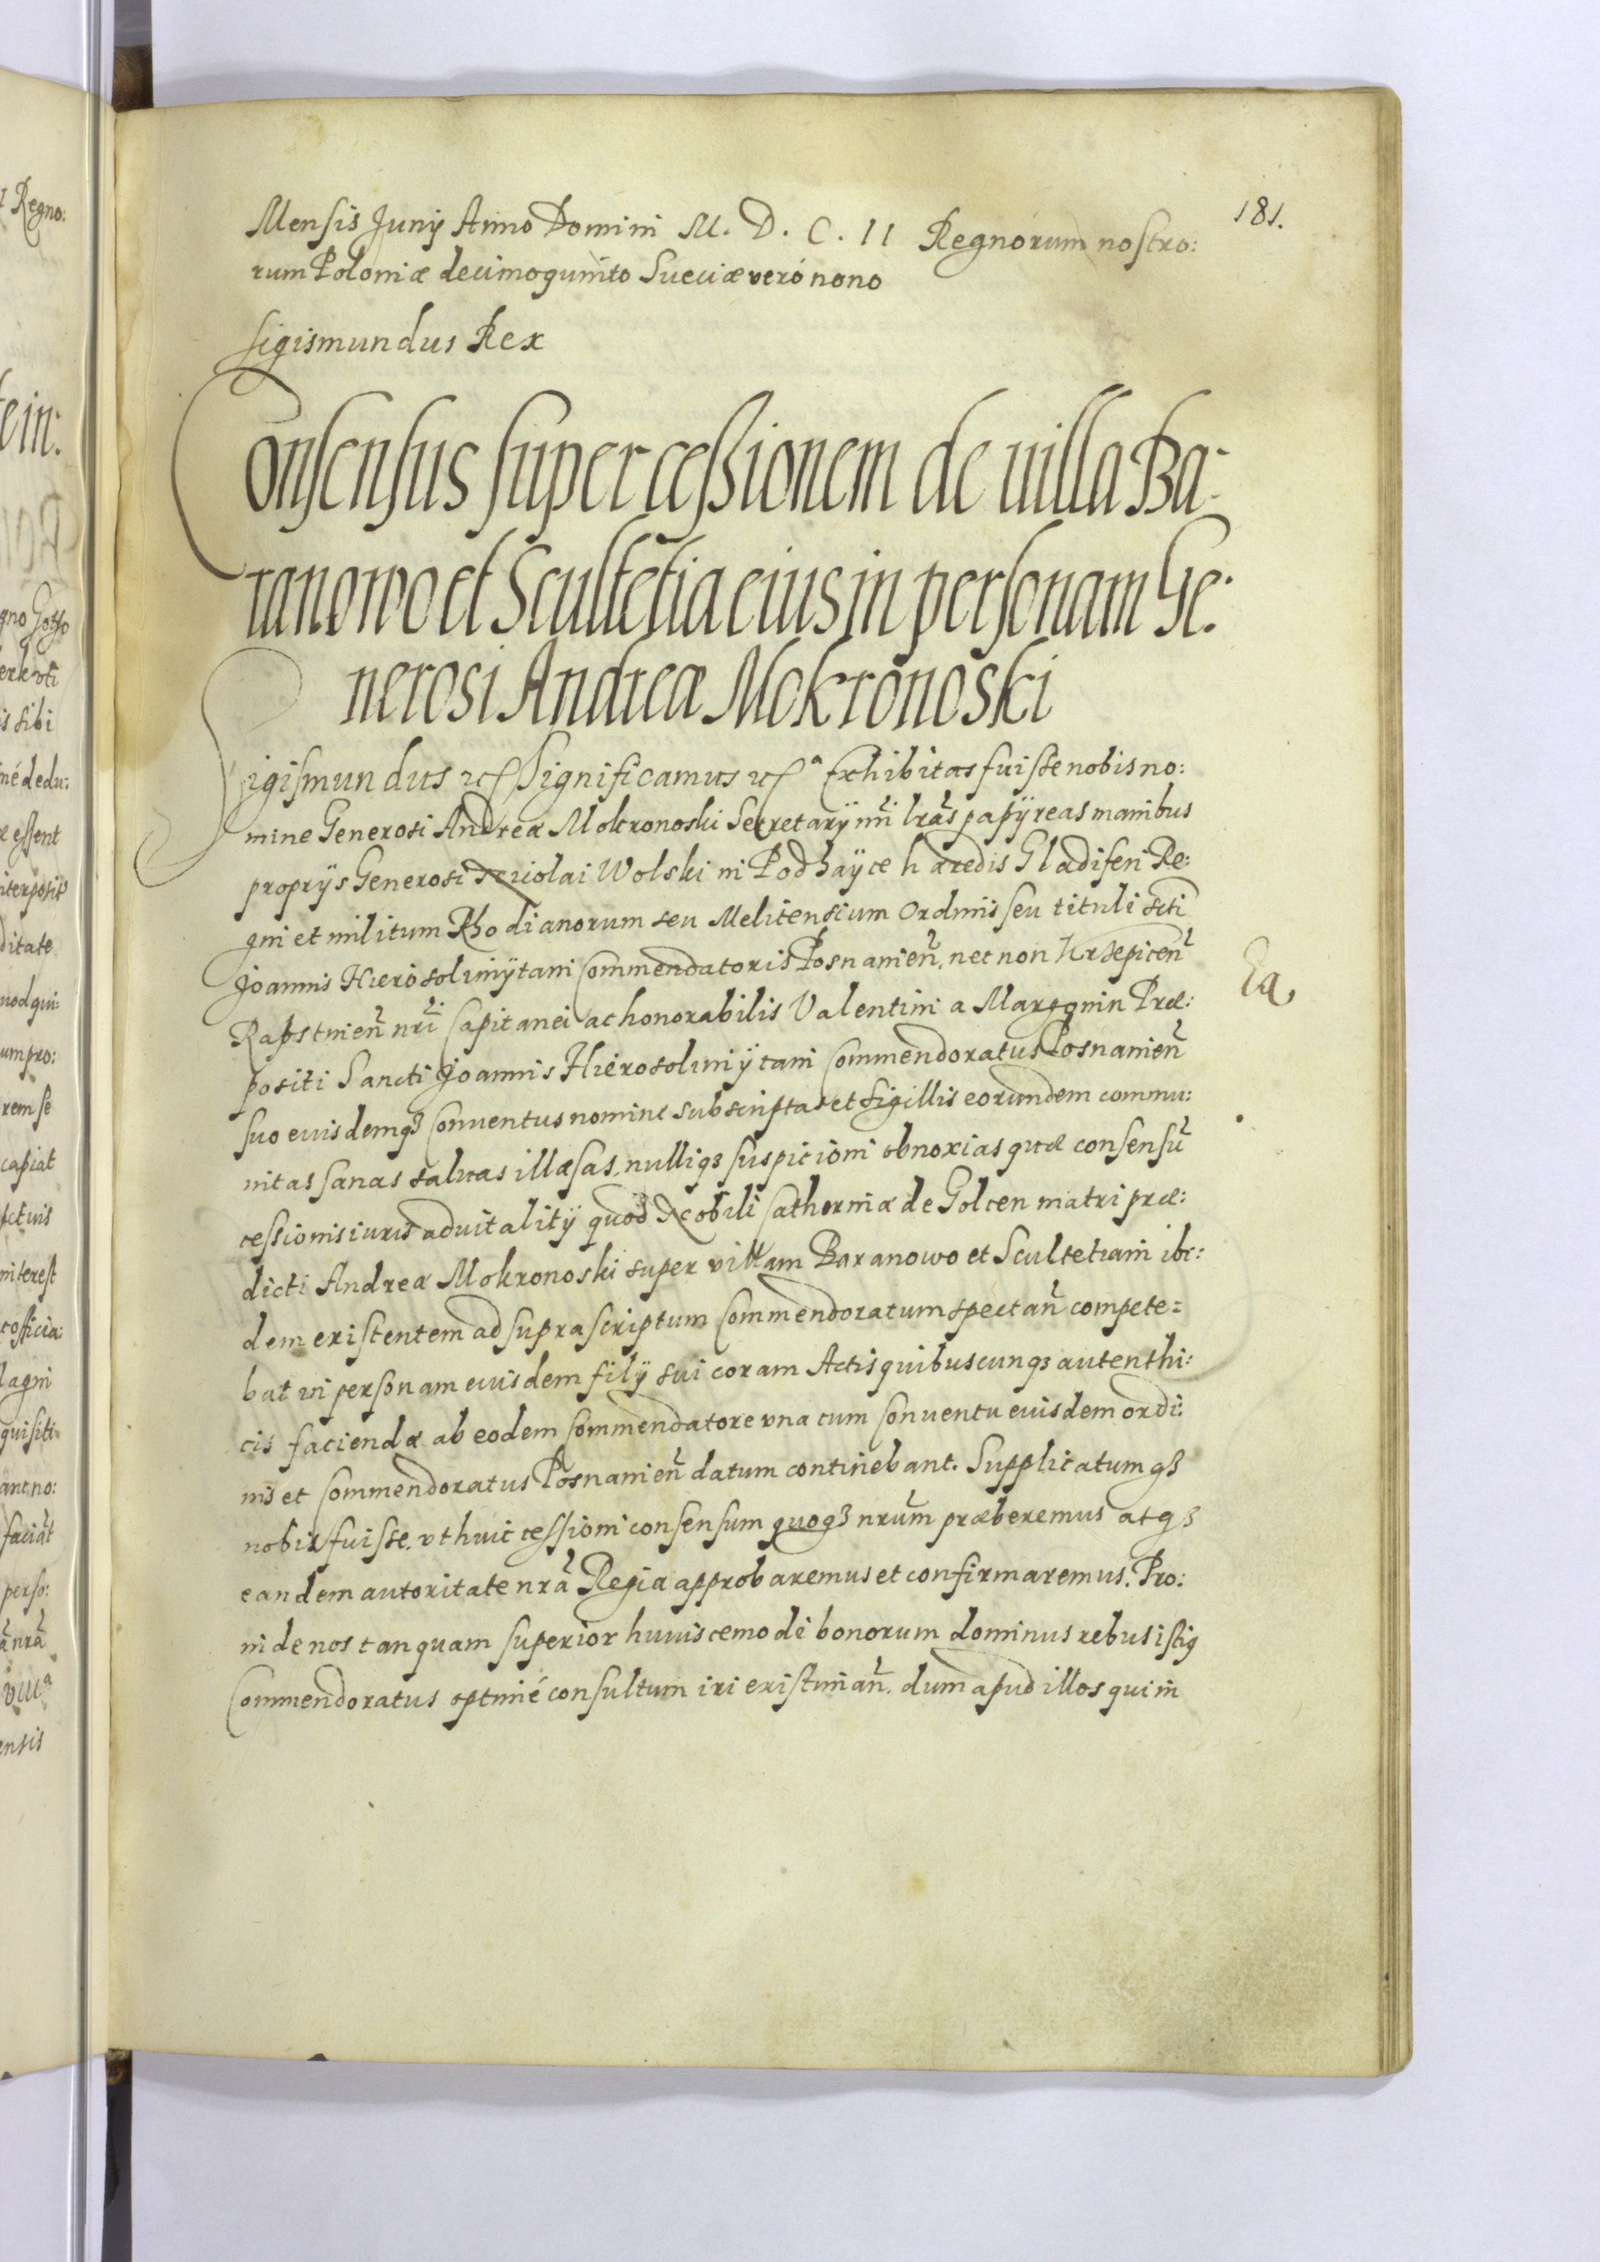 181.
Mensis Junÿ Anno Domini M. D. C. II Regnorum nostro:
rum Poloniæ decimoquinto Sueciæ veró nono
Sigismundus Rex
Consensus super cessionem de villa Ba:
ranowo et Scultetia eius in personam Ge:
nerosi Andreæ Mokronoski
Sigismundus etc Significamus etc ª Exhibitas fuisse nobis no:
mine Generosi Andreæ Mokronoski Secretarÿ nri lras papÿreas manibus
proprÿs Generosi Nicolai Wolski in Podhaÿce hæredis Gladiferi Re:
gni et militum Rhodianorum seu Melitensium Ordinis seu tituli scti
Joannis Hierosolimÿtani Commendatoris Posnanien. nec non Krzepicen
Rapstinien nri Capitanei ac honorabilis Valentini a Margonin Præ:
positi Sancti Joannis Hierosolimÿtani Commendoratus Posnanien
suo euisdemq3 Conuentus nomine subscriptas et sigillis eorundem commu:
nitas sanas saluas illæsas, nulliq3 suspicioni obnoxias quæ consensu
cessionis iuris aduitalitÿ quod Nobili Catherinæ de Golcen matri præ:
dicti Andreæ Mokronoski super villam Baranowo et Scultetiam ibi:
dem existentem ad suprascriptum Commendoratum spectan compete=
bat in personam euisdem filÿ sui coram Actis quibuscunq3 autenthi:
cis faciendæ ab eodem Commendatore vna cum Conuentu euisdem ordi:
nis et Commendoratus Posnanien datum continebant. Supplicatumq3
nobis fuisse, vt huic cessioni consensum quoq3 nrum præberemus atq3
eandem autoritate nra Regia approbaremus et confirmaremus. Pro:
inde nos tanquam superior huiuscemodi bonorum dominus rebus istis
Commendoratus optimé consultum iri existiman. dum apud illos qui in
Ea